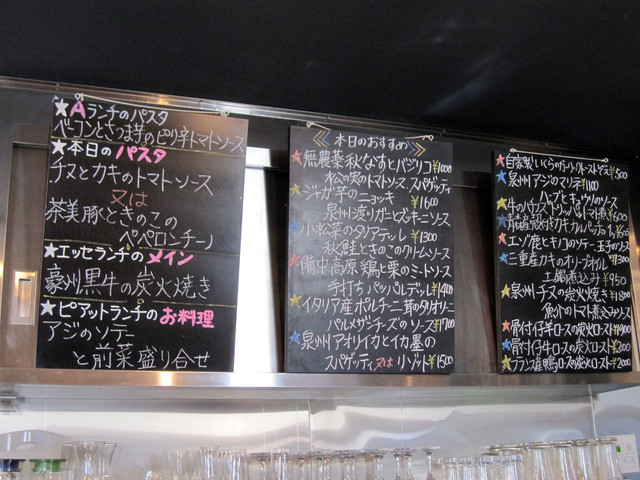 ★Aランチのパスタ
ベーコンとさつま芋のピリ辛トマトソース
★本日のパスタ
チヌとカキのトマトソース
又は
茶美豚ときのこの
ペペロンチーノ
★エッセランチのメイン
豪州黒牛の炭火焼き
★ピアットランチのお料理
アジのソテー
と前菜盛り合せ
本日のおすすめ
★無農薬秋なすとバジリコ ¥1000
松の実のトマトソース スパゲッティ
★ジャガ芋のニョッキ ¥1600
泉州渡りガニとズッキーニソース
★小松菜のタリアテッレ ¥1300
秋鮭ときのこのクリームソース
★備中高原鶏と栗のミートソース
手打ちパッパルデッレ ¥1400
★イタリア産ポルチーニ茸のタリオリーニ
パルメザンチーズのソース ¥1700
★泉州アオリイカとイカ墨の
スパゲッティ又はリゾット ¥1500
★自家製いくらのガーリックトーストぞえ ¥500
★泉州アジのマリネ ¥1100
ハーブとキョウリのソース
★牛のハツ
★エゾ鹿とキノコのソテー 玉子のソース
★三重産カキのオリーブオイル ¥1300
土鍋煮込み ¥950
★泉州チヌの炭火焼き ¥1800
魚介のトマト煮込みソース
★骨付仔羊ロースの炭火ロースト ¥1900
★骨付仔牛ロースの炭火ロースト ¥2200
★フランス産鴨ロースの炭火ロースト ¥2000